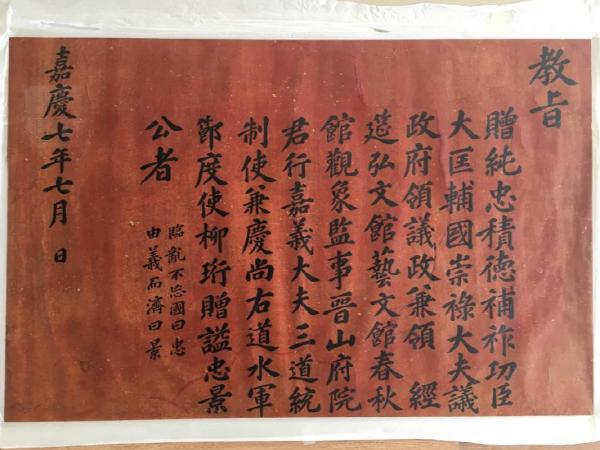 教旨
贈純忠積德補祚功臣
大匡輔國崇祿大夫議
政府領議政兼領 經
筵弘文館藝文館春秋
館觀象監事晉山府院
君行嘉義大夫三道統
制使兼慶尚右道水軍
節度使柳珩贈謚忠景
公者
臨亂不忘國曰忠
由義而濟曰景
嘉慶七年七月 日